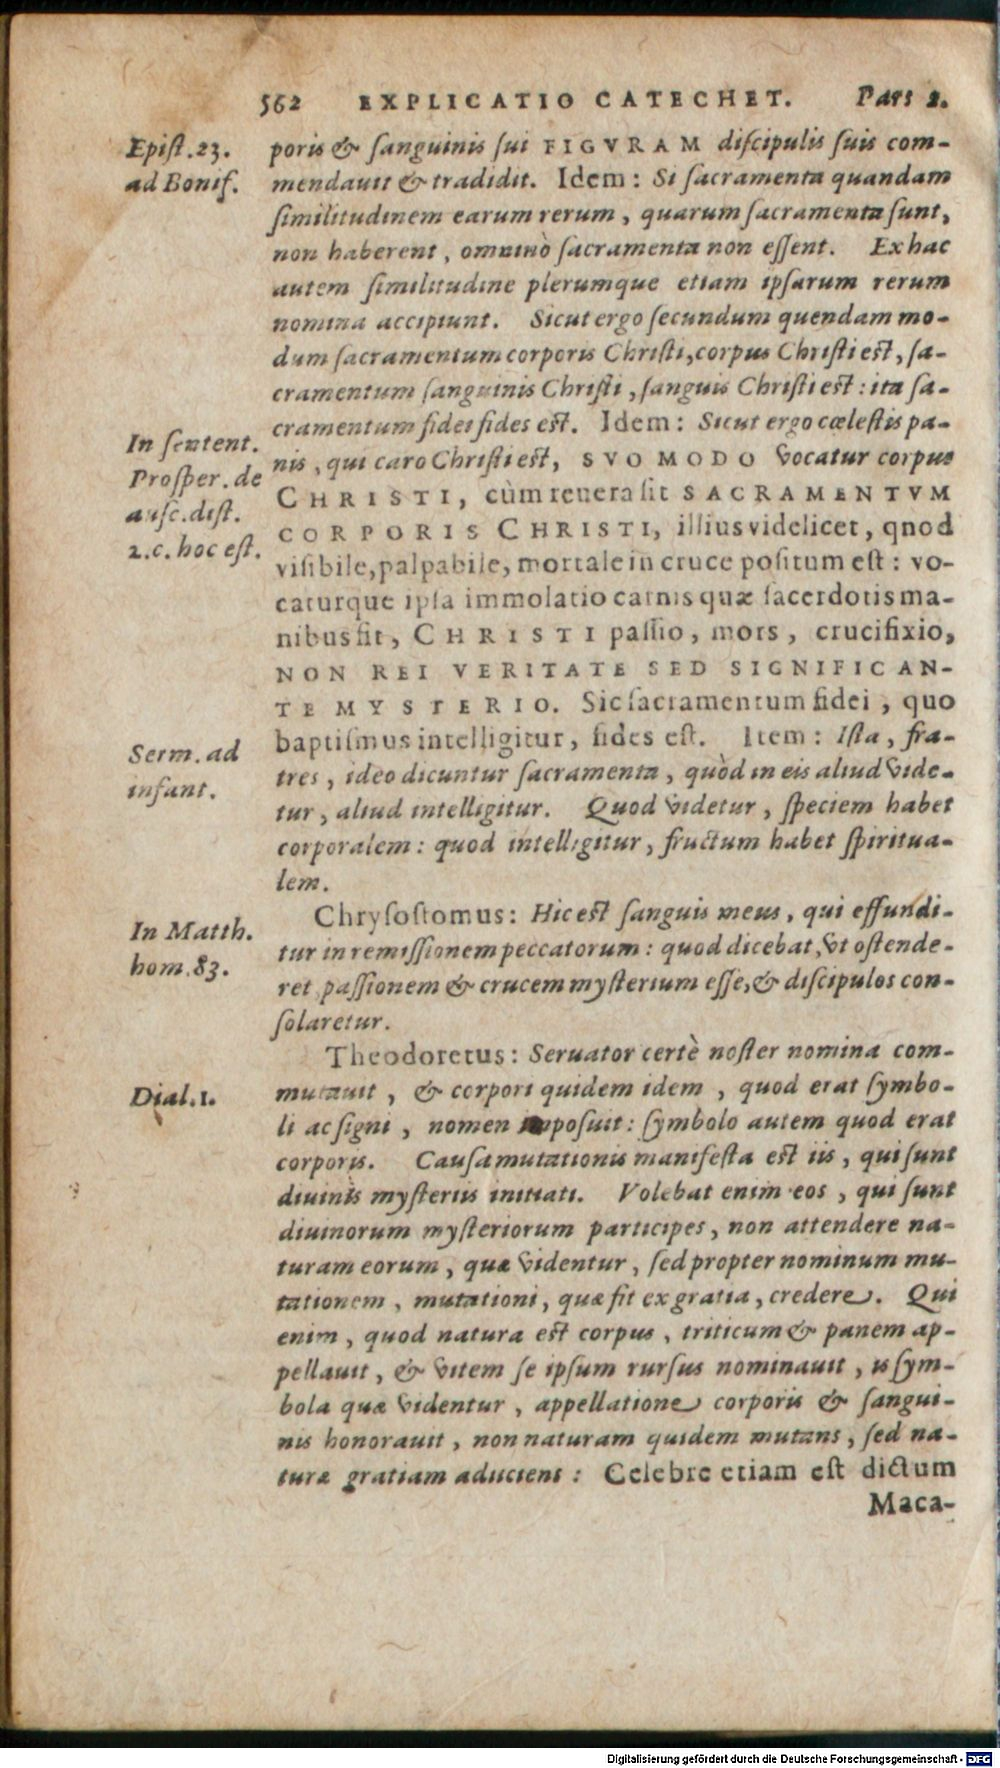 562 EXPLICATIO CATECHET. Pars 2.
Epist. 23.
ad Bonif.
poris & sanguinis sui FIGVRAM discipulis suis com-
mendauit & tradidit. Idem: Si sacramenta quandam
similitudinem earum rerum, quarum sacramenta sunt,
non haberent, omninò sacramenta non essent. Ex hac
autem similitudine plerumque etiam ipsarum rerum
nomina accipiunt. Sicut ergo secundum quendam mo-
dum sacramentum corporis Christi, corpus Christi est, sa-
cramentum sanguinis Christi, sanguis Christi est: ita sa-
cramentum fidei fides est. Idem: Sicut ergo cœlestis pa-
In sentent.
Prosper. de
ausc. dist.
2. c. hoc est.
nis, qui caro Christi est, SVO MODO vocatur corpus
CHRISTI, cùm reuera sit SACRAMENTVM
CORPORIS CHRISTI, illius videlicet, qnod
visibile, palpabile, mortale in cruce positum est: vo-
caturque ipsa immolatio carnis quæ sacerdotis ma-
nibus fit, CHRISTI passio, mors, crucifixio,
NON REI VERITATE SED SIGNIFICAN-
TE MYSTERIO. Sic sacramentum fidei, quo
baptismus intelligitur, fides est. Item: Ista, fra-
Serm. ad
infant.
tres, ideo dicuntur sacramenta, quòd in eis aliud vide-
tur, aliud intelligitur. Quod videtur, speciem habet
corporalem: quod intelligitur, fructum habet spiritua-
lem.
In Matth.
hom. 83.
Chrysostomus: Hic est sanguis meus, qui effundi-
tur in remissionem peccatorum: quod dicebat, vt ostende-
ret passionem & crucem mysterium esse, & discipulos con-
solaretur.
Dial. 1.
Theodoretus: Seruator certè noster nomina com-
mutauit, & corpori quidem idem, quod erat symbo-
li ac signi, nomen imposuit: symbolo autem quod erat
corporis. Causa mutationis manifesta est iis, qui sunt
diuinis mysteriis initiati. Volebat enim eos, qui sunt
diuinorum mysteriorum participes, non attendere na-
turam eorum, quæ videntur, sed propter nominum mu-
tationem, mutationi, quæ fit ex gratia, credere. Qui
enim, quod natura est corpus, triticum & panem ap-
pellauit, & vitem se ipsum rursus nominauit, is sym-
bola quæ videntur, appellatione corporis & sangui-
nis honorauit, non naturam quidem mutans, sed na-
turæ gratiam adiiciens: Celebre etiam est dictum
Maca-
Digitalisierung gefördert durch die Deutsche Forschungsgemeinschaft - DFG